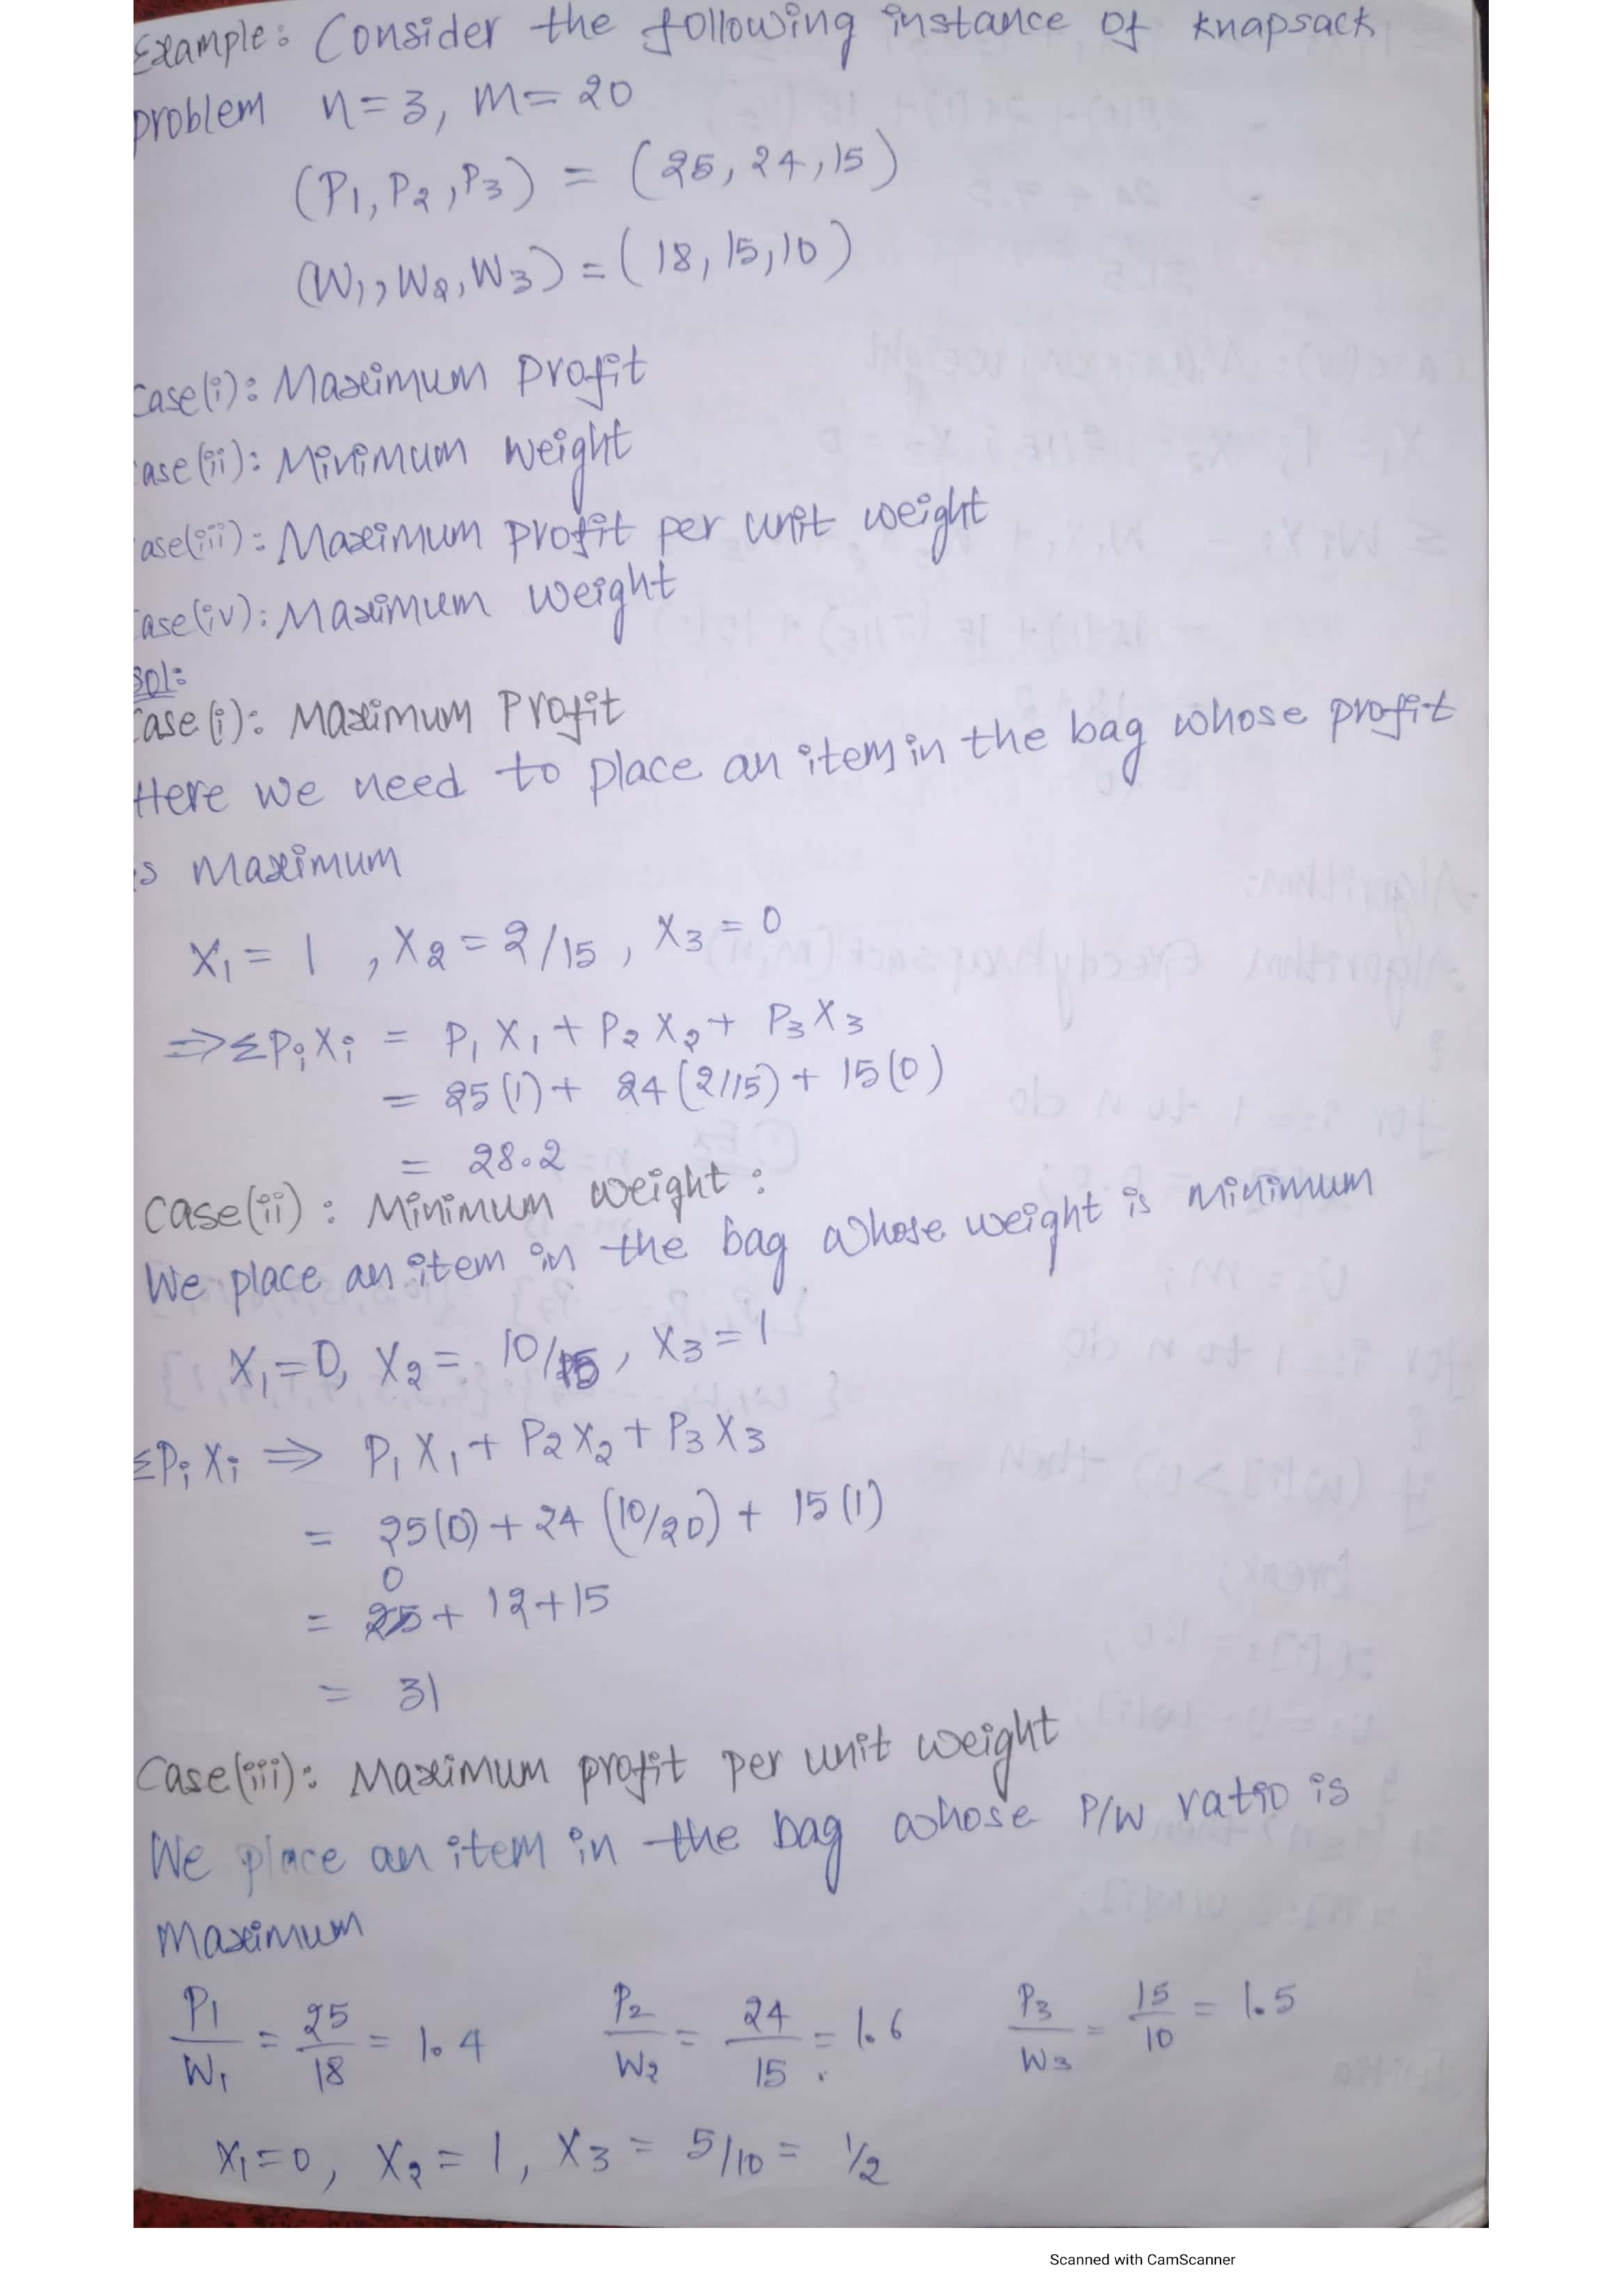 Example: Consider the following instance of knapsack
problem n=3, m=20
(P1, P2, P3) = (25, 24, 15)
(W1, W2, W3) = (18, 15, 10)
Case(i): Maximum Profit
ase(ii): Minimum Weight
ase(iii): Maximum profit per unit weight
ase(iv): Maximum Weight
Sol:
Case(i): Maximum Profit
Here we need to place an item in the bag whose profit
is Maximum
X1 = 1, X2 = 2/15, X3 = 0
⇒ ΣPiXi = P1X1 + P2X2 + P3X3
= 25(1) + 24(2/15) + 15(0)
= 28.2
Case(ii): Minimum weight:
We place an item in the bag whose weight is Minimum
X1 = 0, X2 = 10/15, X3 = 1
ΣPiXi ⇒ P1X1 + P2X2 + P3X3
= 25(0) + 24(10/20) + 15(1)
= 0 + 12 + 15
= 31
Case(iii): Maximum profit per unit weight
We place an item in the bag whose P/W ratio is
Maximum
P1/W1 = 25/18 = 1.4 P2/W2 = 24/15 = 1.6 P3/W3 = 15/10 = 1.5
X1 = 0, X2 = 1, X3 = 5/10 = 1/2
Scanned with CamScanner